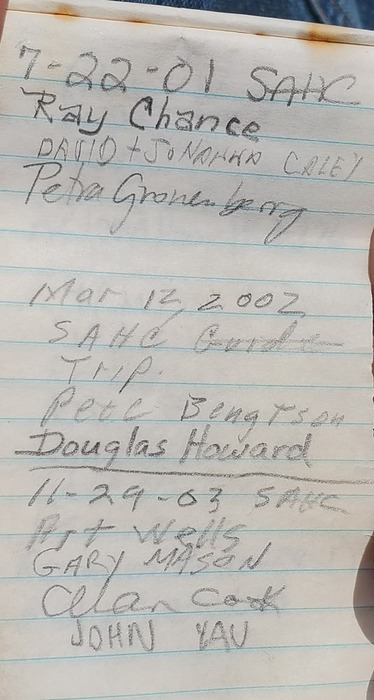 7-22-01 SAHC
Ray Chance
DAVID + JOHANNA CALEY
Petra Gronenberg
Mar 12, 2002
SAHC Guide
Trip.
Pete Bengtson
Douglas Howard
11-29-03 SAHC
Art Wells
GARY MASON
Alan Cook
JOHN YAU